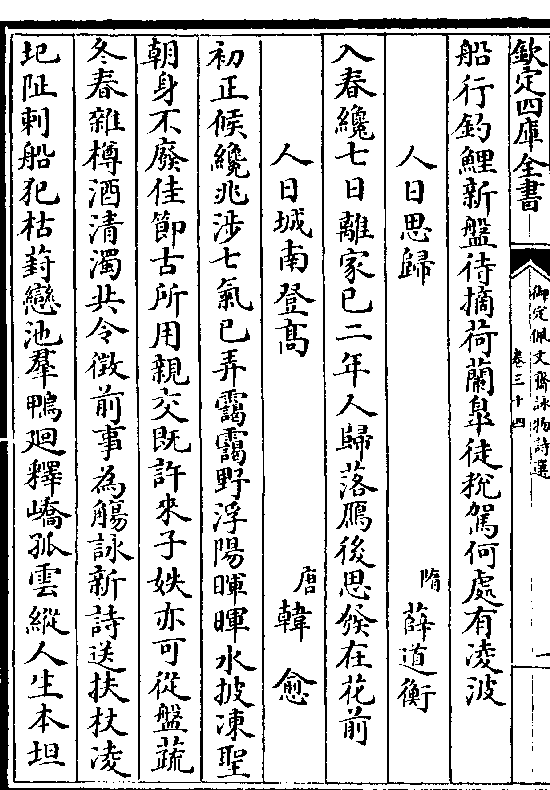 欽定四庫全書
御定佩文齋詠物詩選
卷三十四
一
船行釣鯉新盤待摘荷蘭皋徒稅駕何處有凌波
人日思歸
隋 薛道衡
入春纔七日離家已二年人歸落鴈後思發在花前
人日城南登高
唐 韓愈
初正候纔兆涉七氣已弄靄靄野浮陽暉暉水披凍聖
朝身不廢佳節古所用親交既許來子姪亦可從盤蔬
冬春雜樽酒清濁共令徵前事為觴詠新詩送扶杖凌
圯阯刺船犯枯葑戀池羣鴨廻釋嶠孤雲縱人生本坦